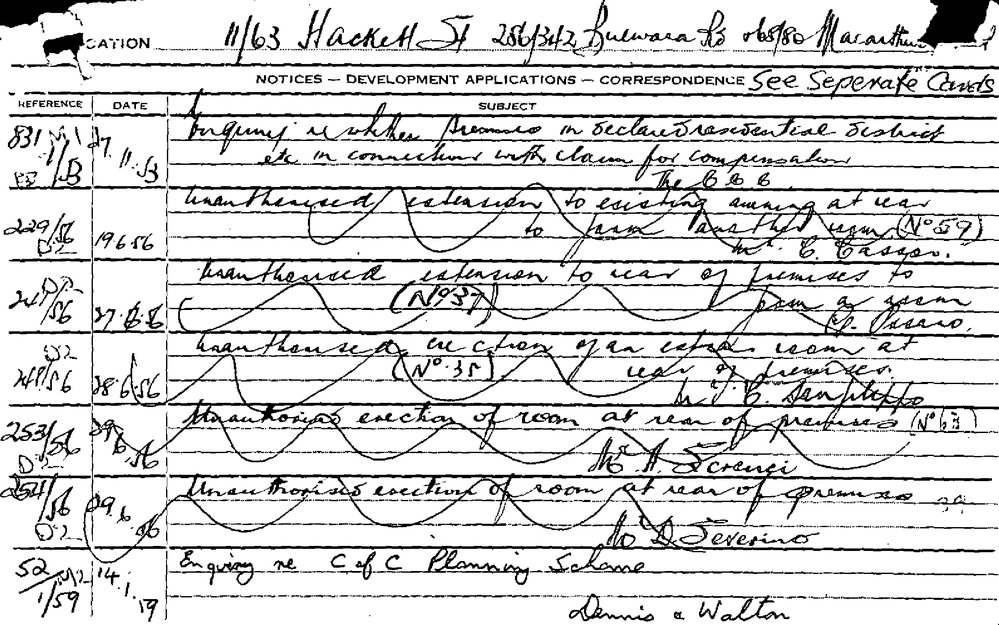 CATION 11/63 Hackett St 286/342 Bulwara Rd 068/80 Macarthur
NOTICES — DEVELOPMENT APPLICATIONS — CORRESPONDENCE See Seperate Cards
REFERENCE DATE SUBJECT
831 Enquiry re whether premises in declared residential district
1/53 27.11.53 etc in connection with claim for compensation
The
Unauthorised extension to existing awning at rear
229/56 D2 19.6.56 to form another room (No 59)
Mr C.
Unauthorised extension to rear of premises to
247/56 27.6.56 (No 37) form a room
D2 Unauthorised erection of an extra room at
248/56 28.6.56 (No. 35) rear of premises.
253/56 29.6.56 Unauthorised erection of room at rear of premises (No 63)
D2 Mr A.
254/56 29.6.56 Unauthorised erection of room at rear of premises
D2 Mr D. Severino
52 1/59 14.1.59 Enquiry re C of C Planning Scheme
Dennis & Walton